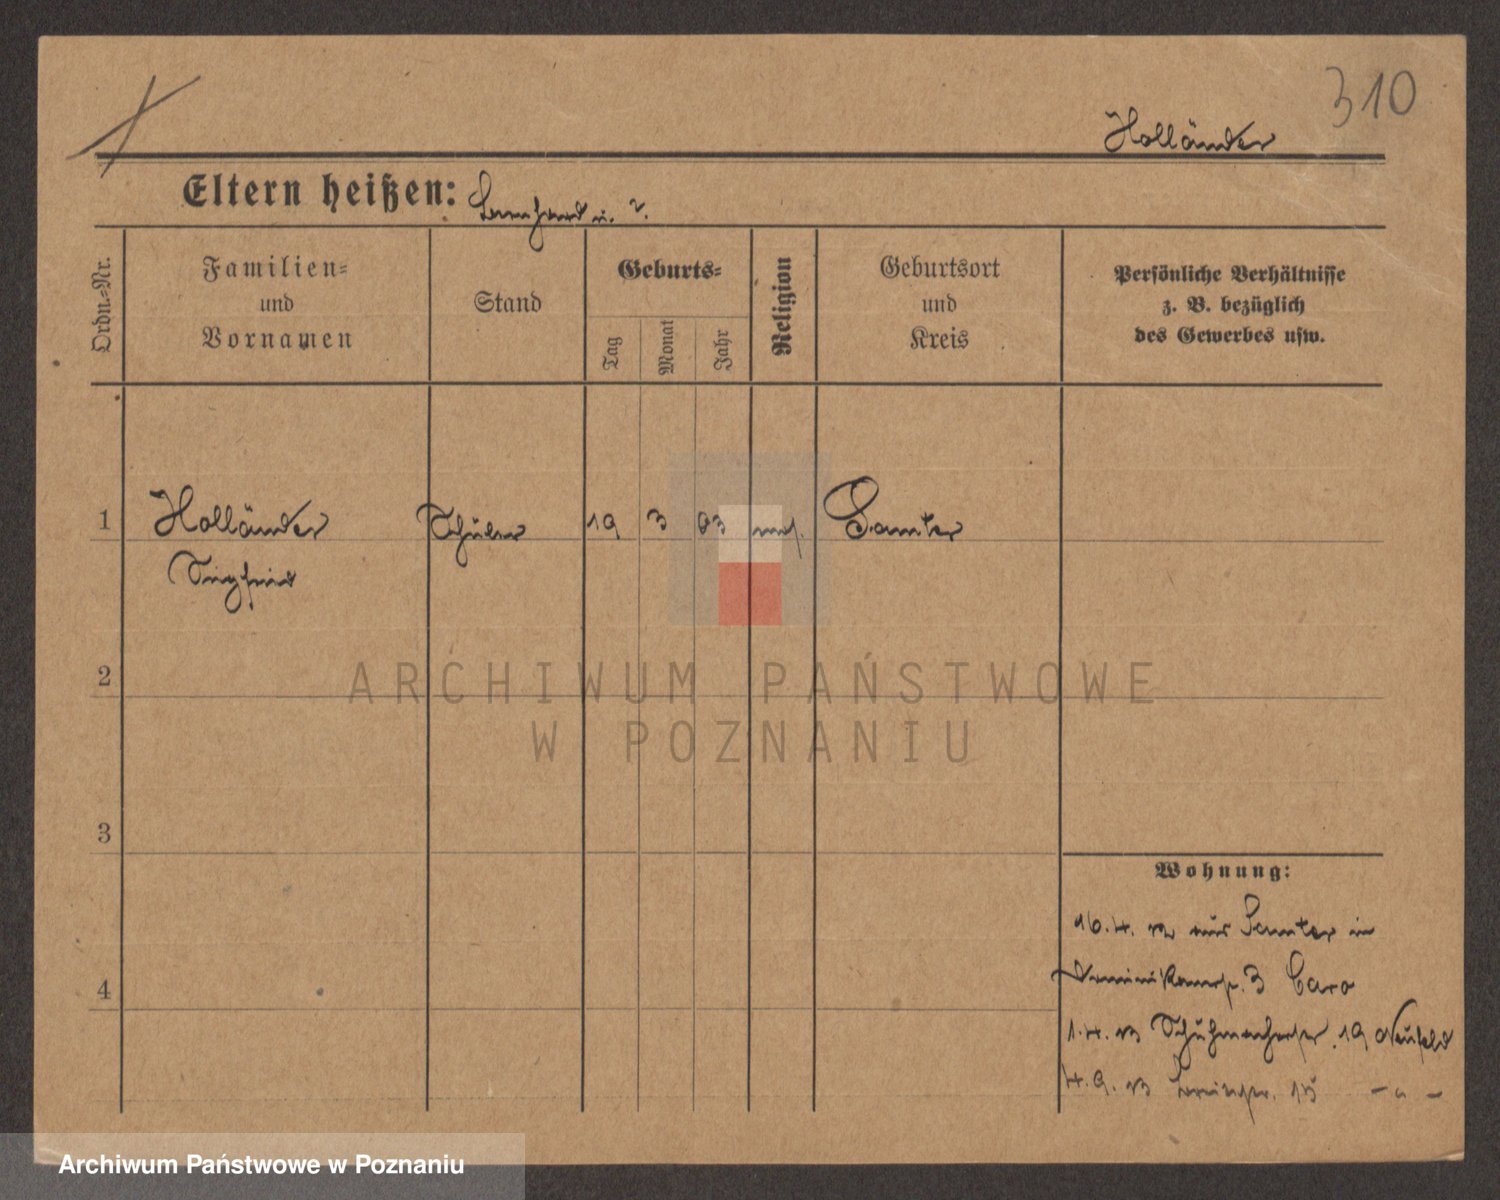 310
Holländer
Eltern heißen: Bernhard u. ?.
Ordn.=Nr.
Familien=
und
Vornamen
Stand
Geburts=
Tag
Monat
Jahr
Religion
Geburtsort
und
Kreis
Persönliche Verhältnisse
z. B. bezüglich
des Gewerbes usw.
1
Holländer
Siegfried
Schüler
19
3
03
mos.
Samter
2
3
4
Wohnung:
16.4. aus Samter in
Dominikanerstr. 3 Caro
1.4. 13 Schuhmacherstr. 19 Neufeld
4.9. 13 15 - " -
ARCHIWUM PAŃSTWOWE
W POZNANIU
Archiwum Państwowe w Poznaniu